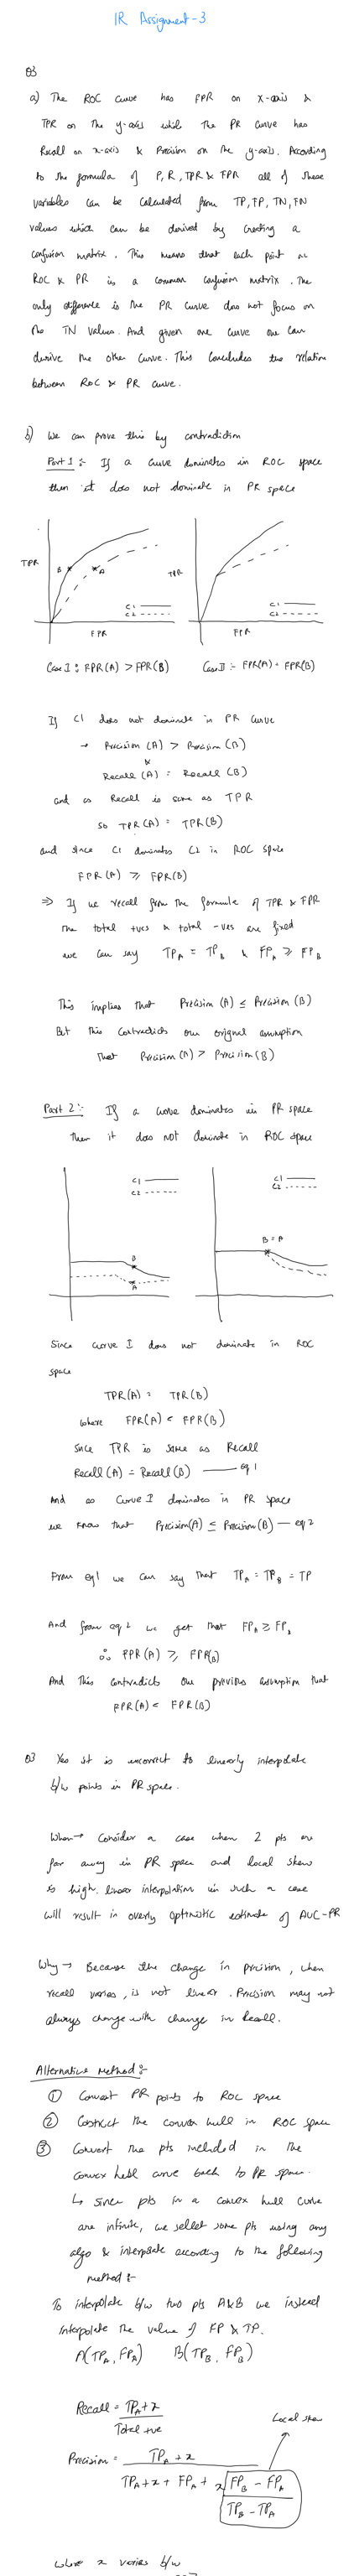 IR Assignment-3
Q3
a) The ROC curve has FPR on x-axis &
TPR on the y-axis while the PR curve has
Recall on x-axis & Precision on the y-axis. According
to the formula of P, R, TPR & FPR all of these
variables can be calculated from TP, FP, TN, FN
values which can be derived by creating a
confusion matrix. This means that each point on
ROC & PR is a common confusion matrix. The
only difference is the PR curve does not focus on
the TN values. And given one curve one can
derive the other curve. This concludes the relation
between ROC & PR curve.
b) we can prove this by contradiction
Part 1 :- If a curve dominates in ROC space
then it does not dominate in PR space
TPR
B
A
C1
C2
FPR
TPR
C1
C2
FPR
Case I : FPR(A) > FPR(B)
Case II :- FPR(A) = FPR(B)
If C1 does not dominate in PR curve
→ Precision (A) > Precision (B)
&
Recall (A) = Recall (B)
and as Recall is same as TPR
so TPR(A) = TPR(B)
and since C1 dominates C2 in ROC space
FPR(A) ≥ FPR(B)
⇒ If we recall from the formula of TPR & FPR
the total +ves & total -ves are fixed
we can say TP_A = TP_B & FP_A ≥ FP_B
This implies that Precision (A) ≤ Precision (B)
But this contradicts our orignal assumption
that Precision (A) > Precision (B)
Part 2 :- If a curve dominates in PR space
then it does not dominate in ROC space
C1
C2
B
A
C1
C2
B = A
Since curve I does not dominate in ROC
space
TPR(A) = TPR(B)
where FPR(A) < FPR(B)
since TPR is same as Recall
Recall (A) = Recall (B) — eq 1
And as curve I dominates in PR space
we know that Precision(A) ≤ Precision(B) — eq 2
From eq1 we can say that TP_A = TP_B = TP
And from eq 2 we get that FP_A ≥ FP_B
∴ FPR(A) ≥ FPR(B)
And this contradicts our previous assumption that
FPR(A) < FPR(B)
Q3 Yes it is incorrect to linearly interpolate
b/w points in PR space.
When → Consider a case when 2 pts are
far away in PR space and local skew
is high. linear interpolation in such a case
will result in overly optimistic estimate of AUC-PR
Why → Because the change in precision, when
recall varies, is not linear. Precision may not
always change with change in Recall.
Alternative Method :-
① Convert PR points to ROC space
② Costruct the convex hull in ROC space
③ Convert the pts included in the
convex hull curve back to PR space.
↳ since pts in a convex hull curve
are infinite, we select some pts using any
algo & interpolate according to the following
method :-
To interpolate b/w two pts A&B we instead
interpolate the value of FP & TP.
A(TP_A, FP_A) B(TP_B, FP_B)
Recall = TP_A + x
Total +ve
Local skew
Precision = TP_A + x
TP_A + x + FP_A + x FP_B - FP_A
TP_B - TP_A
where x varies b/w